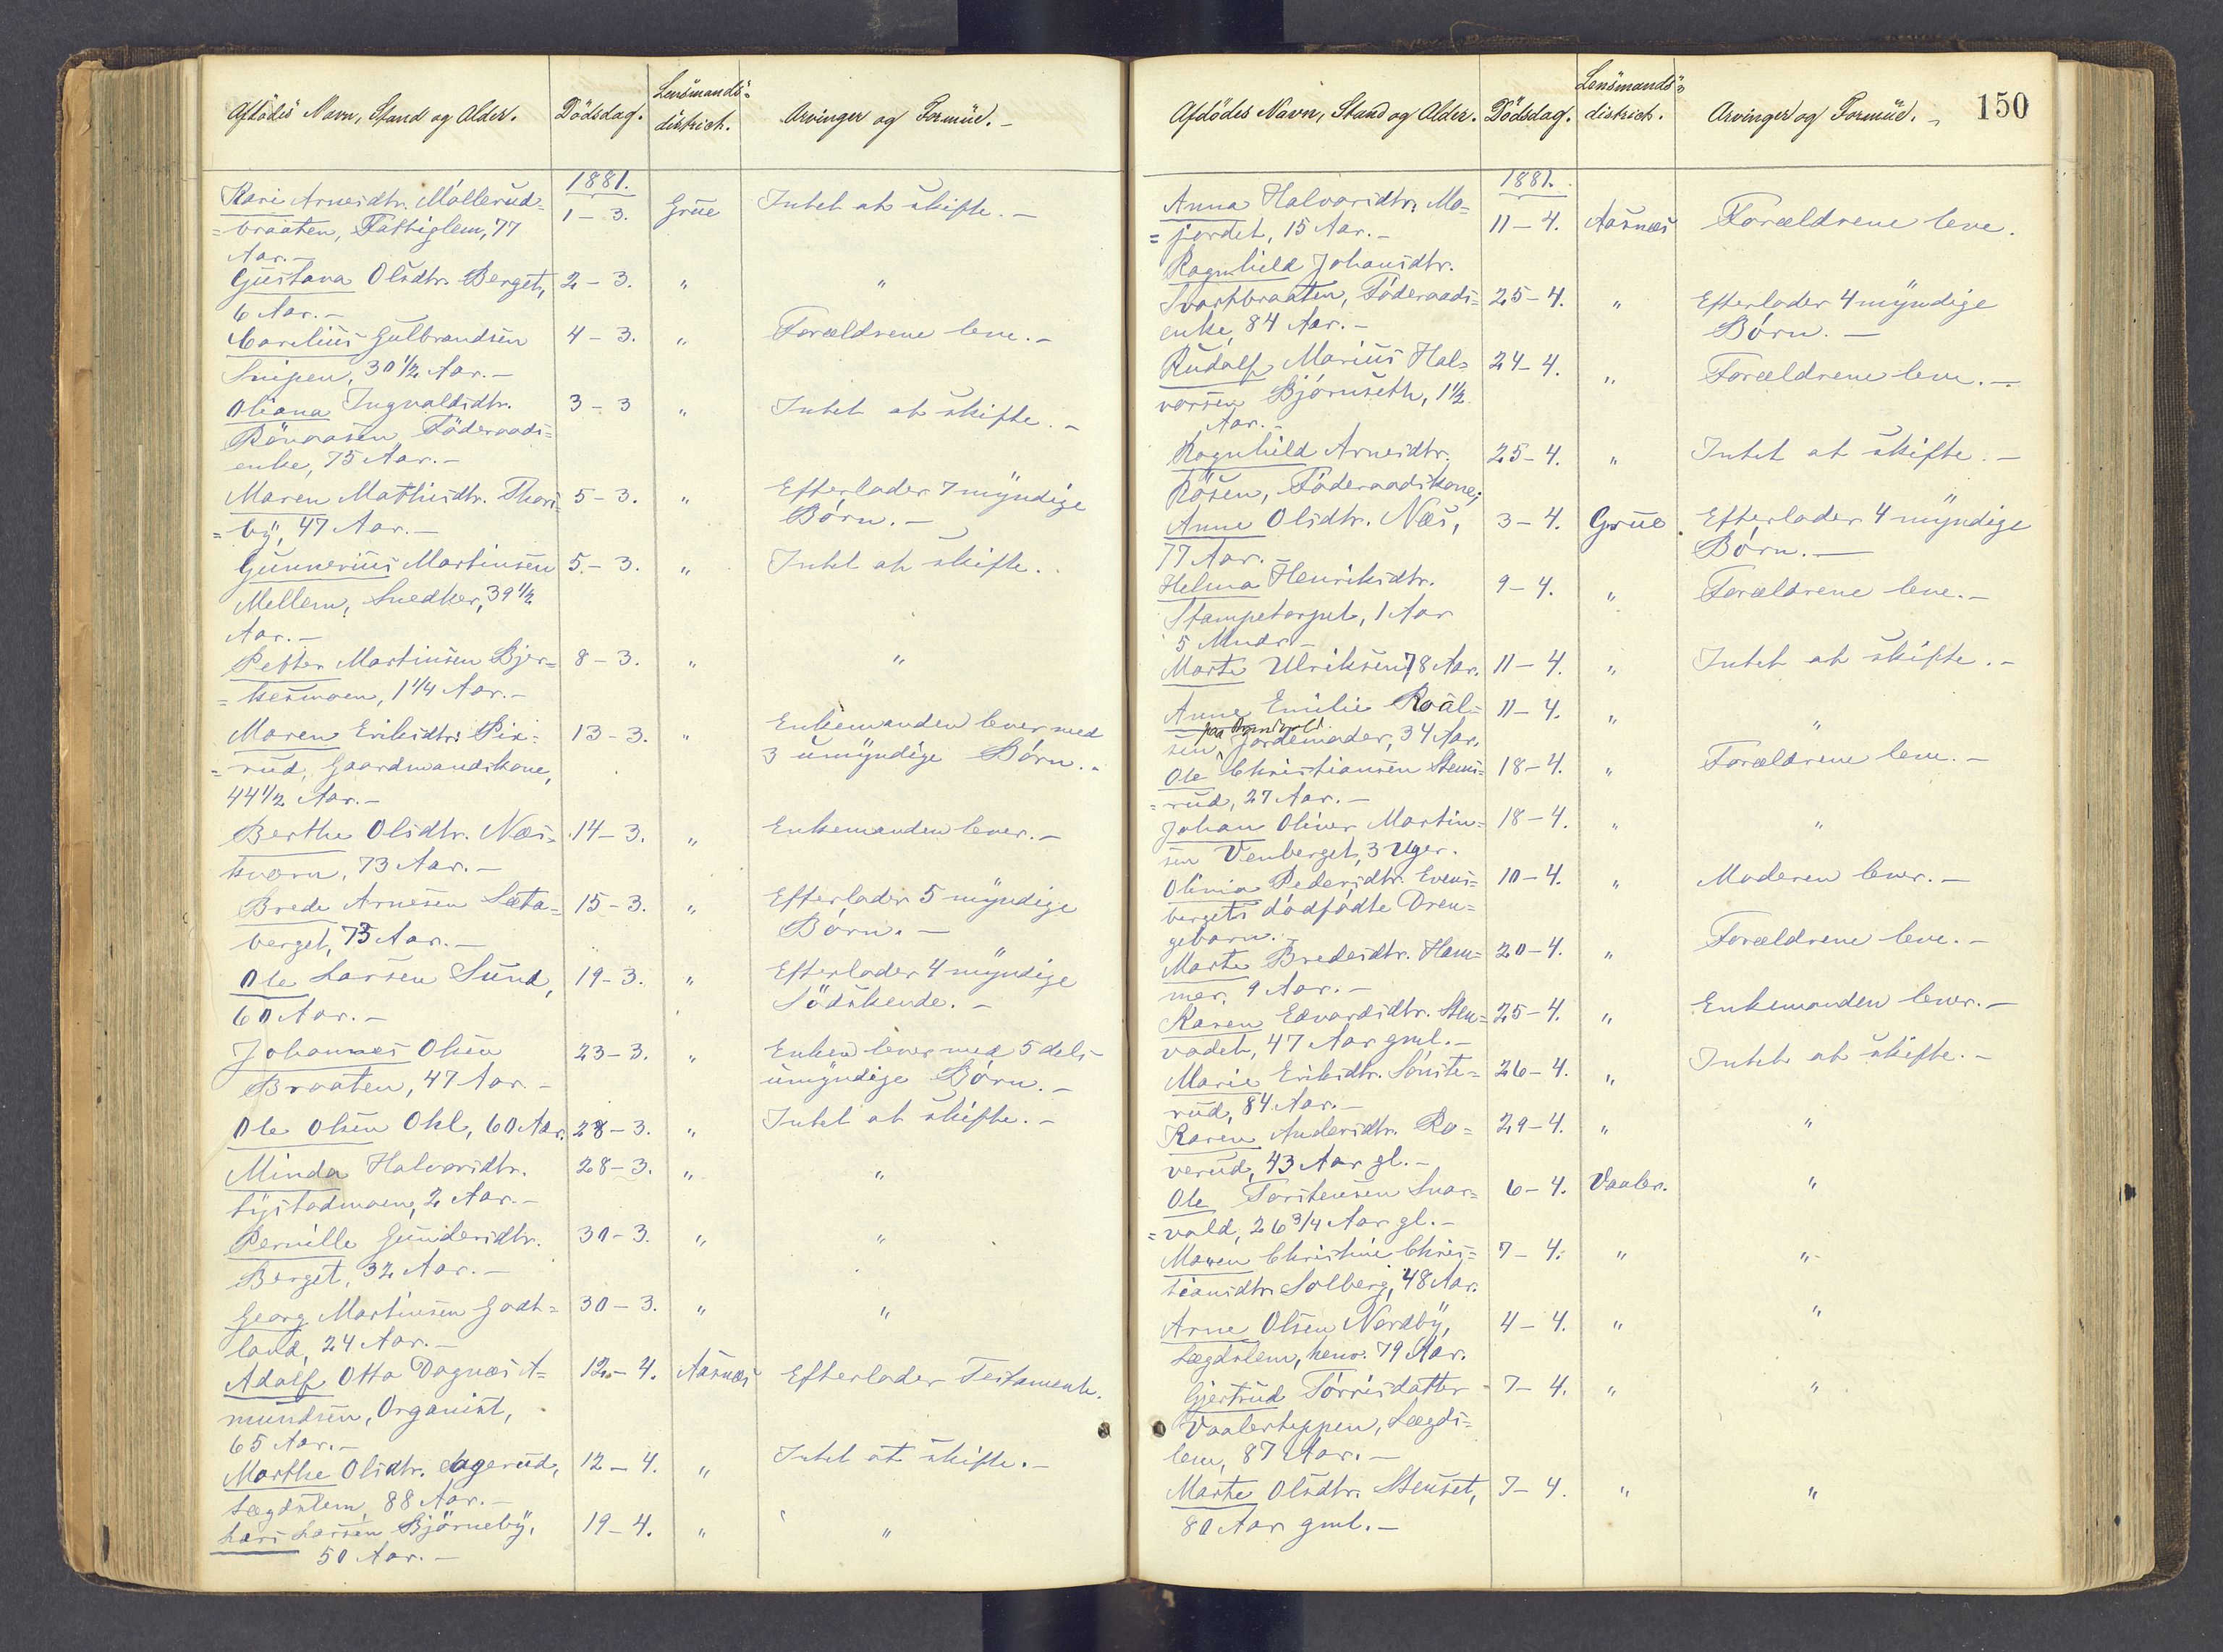 Afdödes Navn, Stand og Alder. Dödsdag. Lensmands- Arvinger og Formue. -
distrikt.
1881.
Kari Arnesdtr. Möllerud= 1-3. Grue Intet at skifte. -
=braaten, Fattiglem, 77
Aar. -
Gustava Olsdtr. Berget, 2-3. " "
6 Aar. -
Carelius Gulbrandsen 4-3. " Forældrene leve. -
Snipen, 30 1/2 Aar. -
Oliana Ingvaldsdtr. 3-3 " Intet at skifte. -
Rönaasen Föderaads=
enke, 75 Aar. -
Maren Mathisdtr. Thors= 5-3. " Efterlader 7 myndige
=by, 47 Aar. - Börn. -
Gunnerius Martinsen 5-3. " Intet at skifte.
Mellem, Snedker, 39 1/2
Aar. -
Petter Martinsen Bjer= 8-3. " "
=kesmoen, 1 1/4 Aar. -
Maren Eriksdtr. Pix= 13-3. " Enkemanden lever med
=rud, Gaardmandskone, 3 umyndige Börn. -
44 1/2 Aar. -
Berthe Olsdtr. Næs= 14-3. " Enkemanden lever. -
kværn, 73 Aar. -
Brede Arnesen Sæta= 15-3. " Efterlader 5 myndige
berget, 73 Aar. - Börn. -
Ole Larsen Sund, 19-3. " Efterlader 4 myndige
60 Aar. - Södskende. -
Johannes Olsen 23-3. " Enken lever med 5 dels
Braaten, 47 Aar. - umyndige Börn. -
Ole Olsen Okl, 60 Aar. 28-3. " Intet at skifte. -
Minda Halvorsdtr. 28-3. " "
Lystadmoen, 2 Aar. -
Pernille Gundersdtr. 30-3. " "
Berget, 32 Aar. -
Georg Martinsen Godt= 30-3. " "
land, 24 Aar. -
Adolf Otto Dagnæs A= 12-4. Aasnæs Efterlader Testament.
mundsen, Organist,
65 Aar. -
Marthe Olsdtr. Hagerud, 12-4. " Intet at skifte. -
Lægdslem, 88 Aar. -
Lars Larsen Björneby, 19-4. " "
50 Aar. -
150
Afdödes Navn, Stand og Alder. Dödsdag. Lensmands- Arvinger og Formue. -
distrikt.
1881.
Anna Halvorsdtr. Mo=
=jordet, 15 Aar. - 11-4. Aasnæs Forældrene leve.
Ragnhild Johansdtr.
Svartbraaten, Föderaads= 25-4. " Efterlader 4 myndige
enke, 84 Aar. - Börn. -
Rudolf Marius Hal= 24-4. " Forældrene leve. -
vorsen Björnseth, 1 1/2
Aar. -
Ragnhild Arnesdtr. 25-4. " Intet at skifte. -
Rösen, Föderaadskone,
Anne Olsdtr. Næs, 3-4. Grue. Efterlader 4 myndige
77 Aar. - Börn. -
Helma Henriksdtr. 9-4. " Forældrene leve. -
Stampetorpet, 1 Aar
5 Mndr. -
Marte Ulriksen, 78 Aar. 11-4. " Intet at skifte. -
Anne Emilie Roäl= 11-4. " "
paa
sen, Jordemoder, 34 Aar.
Ole Christiansen Stens= 18-4. " Forældrene leve. -
=rud, 27 Aar. -
Johan Oliver Martin= 18-4. " "
sen Venberget, 3 Uger.
Olivia Pedersdtr. Evens= 10-4. " Moderen lever. -
bergets dödfödte Dren=
gebarn. -
Marte Bredesdtr. Ham= 20-4. " Forældrene leve. -
mer, 9 Aar. -
Karen Edvardsdtr. Sten= 25-4. " Enkemanden lever. -
vadet, 47 Aar gml. -
Marie Eriksdtr. Sönste= 26-4. " Intet at skifte. -
rud, 84 Aar. -
Karen Andersdtr. Ro= 29-4. " "
verud, 43 Aar gl. -
Ole Torstensen Snar= 6-4. Vaaler. "
=vold, 26 3/4 Aar gl. -
Maren Christine Chris= 7-4. " "
tiansdtr. Solberg, 48 Aar.
Arne Olsen Nordby, 4-4. " "
Lægdslem, henv. 79 Aar.
Gjertrud Törrisdatter 7-4. " "
Vaalerteppen, Lægds=
lem, 87 Aar. -
Marte Olsdtr. Stenset, 7-4. " "
80 Aar gml. -